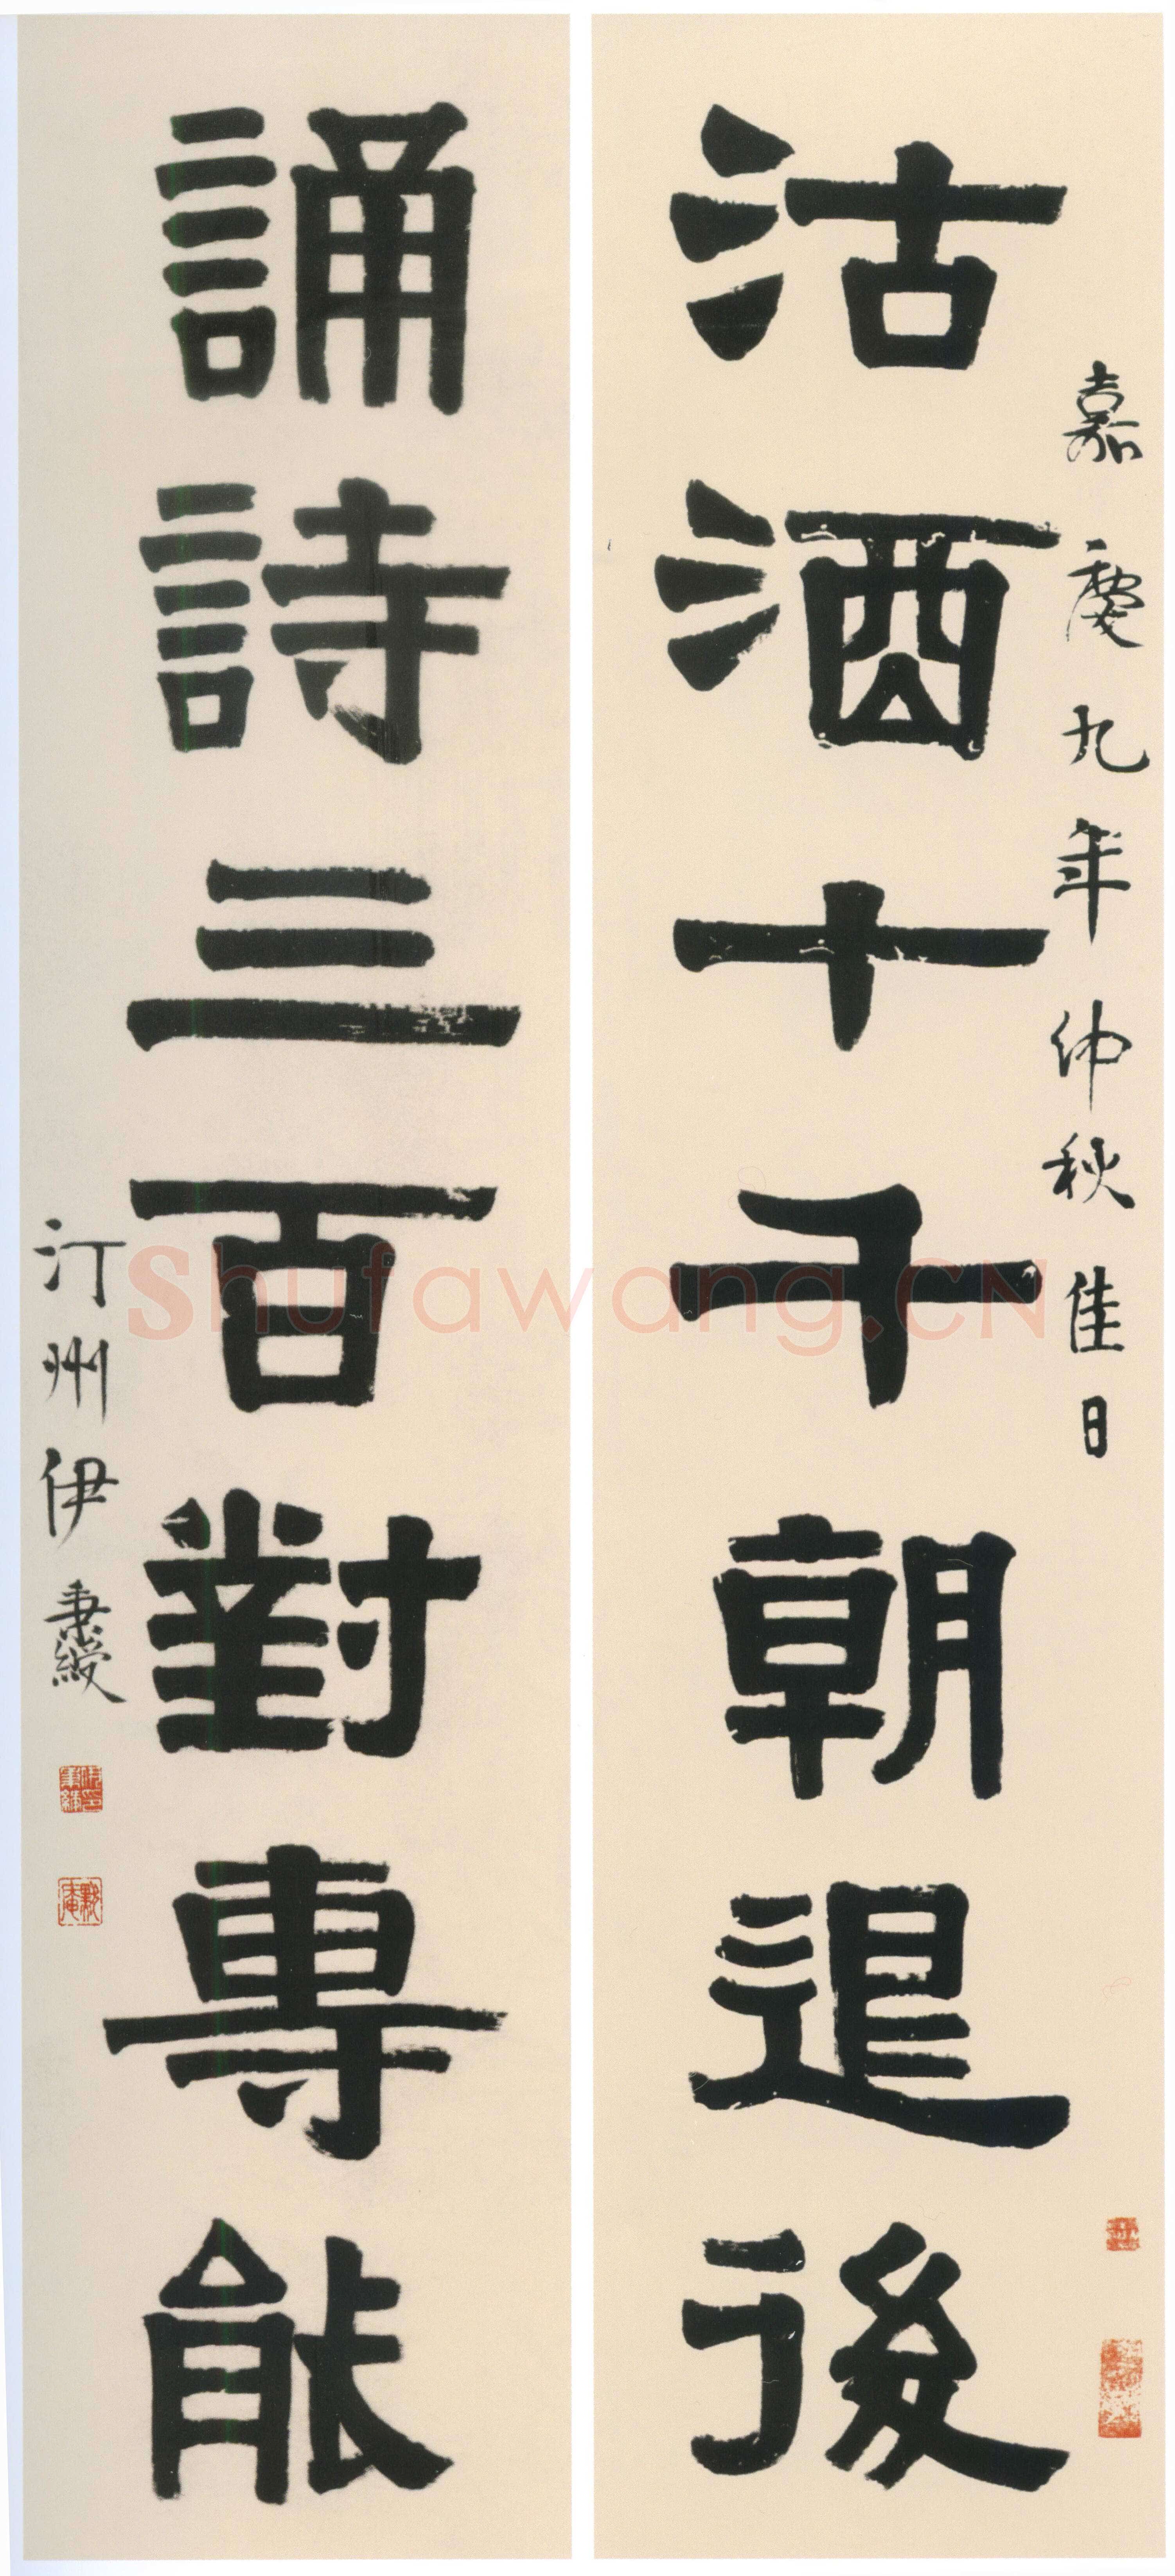 嘉慶九年仲秋佳日
沽酒十千朝退後
誦詩三百對專能
汀州伊秉綬
Shufawang.CN